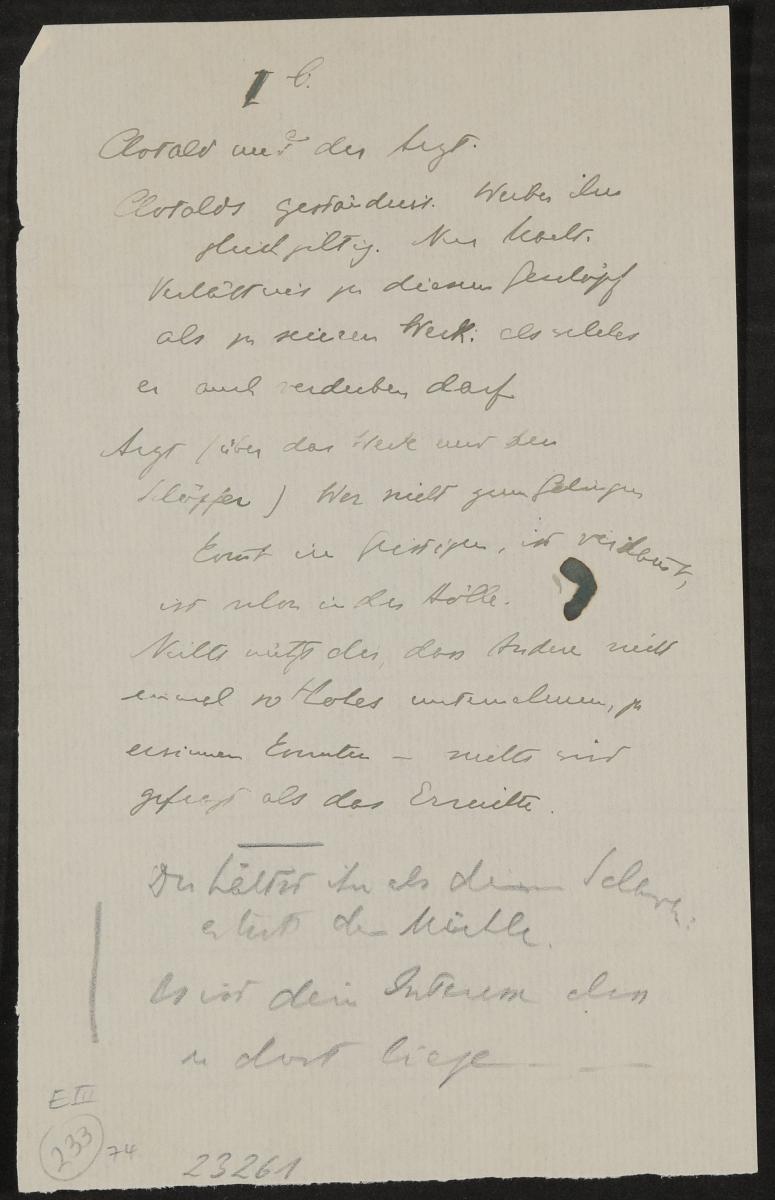 I b.
Clotald und der Arzt.
Clotalds Geständnis. Werber ihm
gleichgiltig. Nur
Verhältnis zu diesem Geschöpf
als zu seinem Werk: als welches
er auch verderben darf
Arzt (über das Werk und den
Schöpfer) Wer nicht zum Gelingen
kommt im Geistigen, ist verdammt,
ist schon in der Hölle.
Nichts nützt der, dass Andere nicht
einmal so Hohes unternehmen, zu
ersinnen konnten – nichts wird
gefragt als das Erreichte.
Du hältst ihn als deinen
der Mächte.
Es ist dein Interesse dass
er dort liege — —
E III
233
74
23261